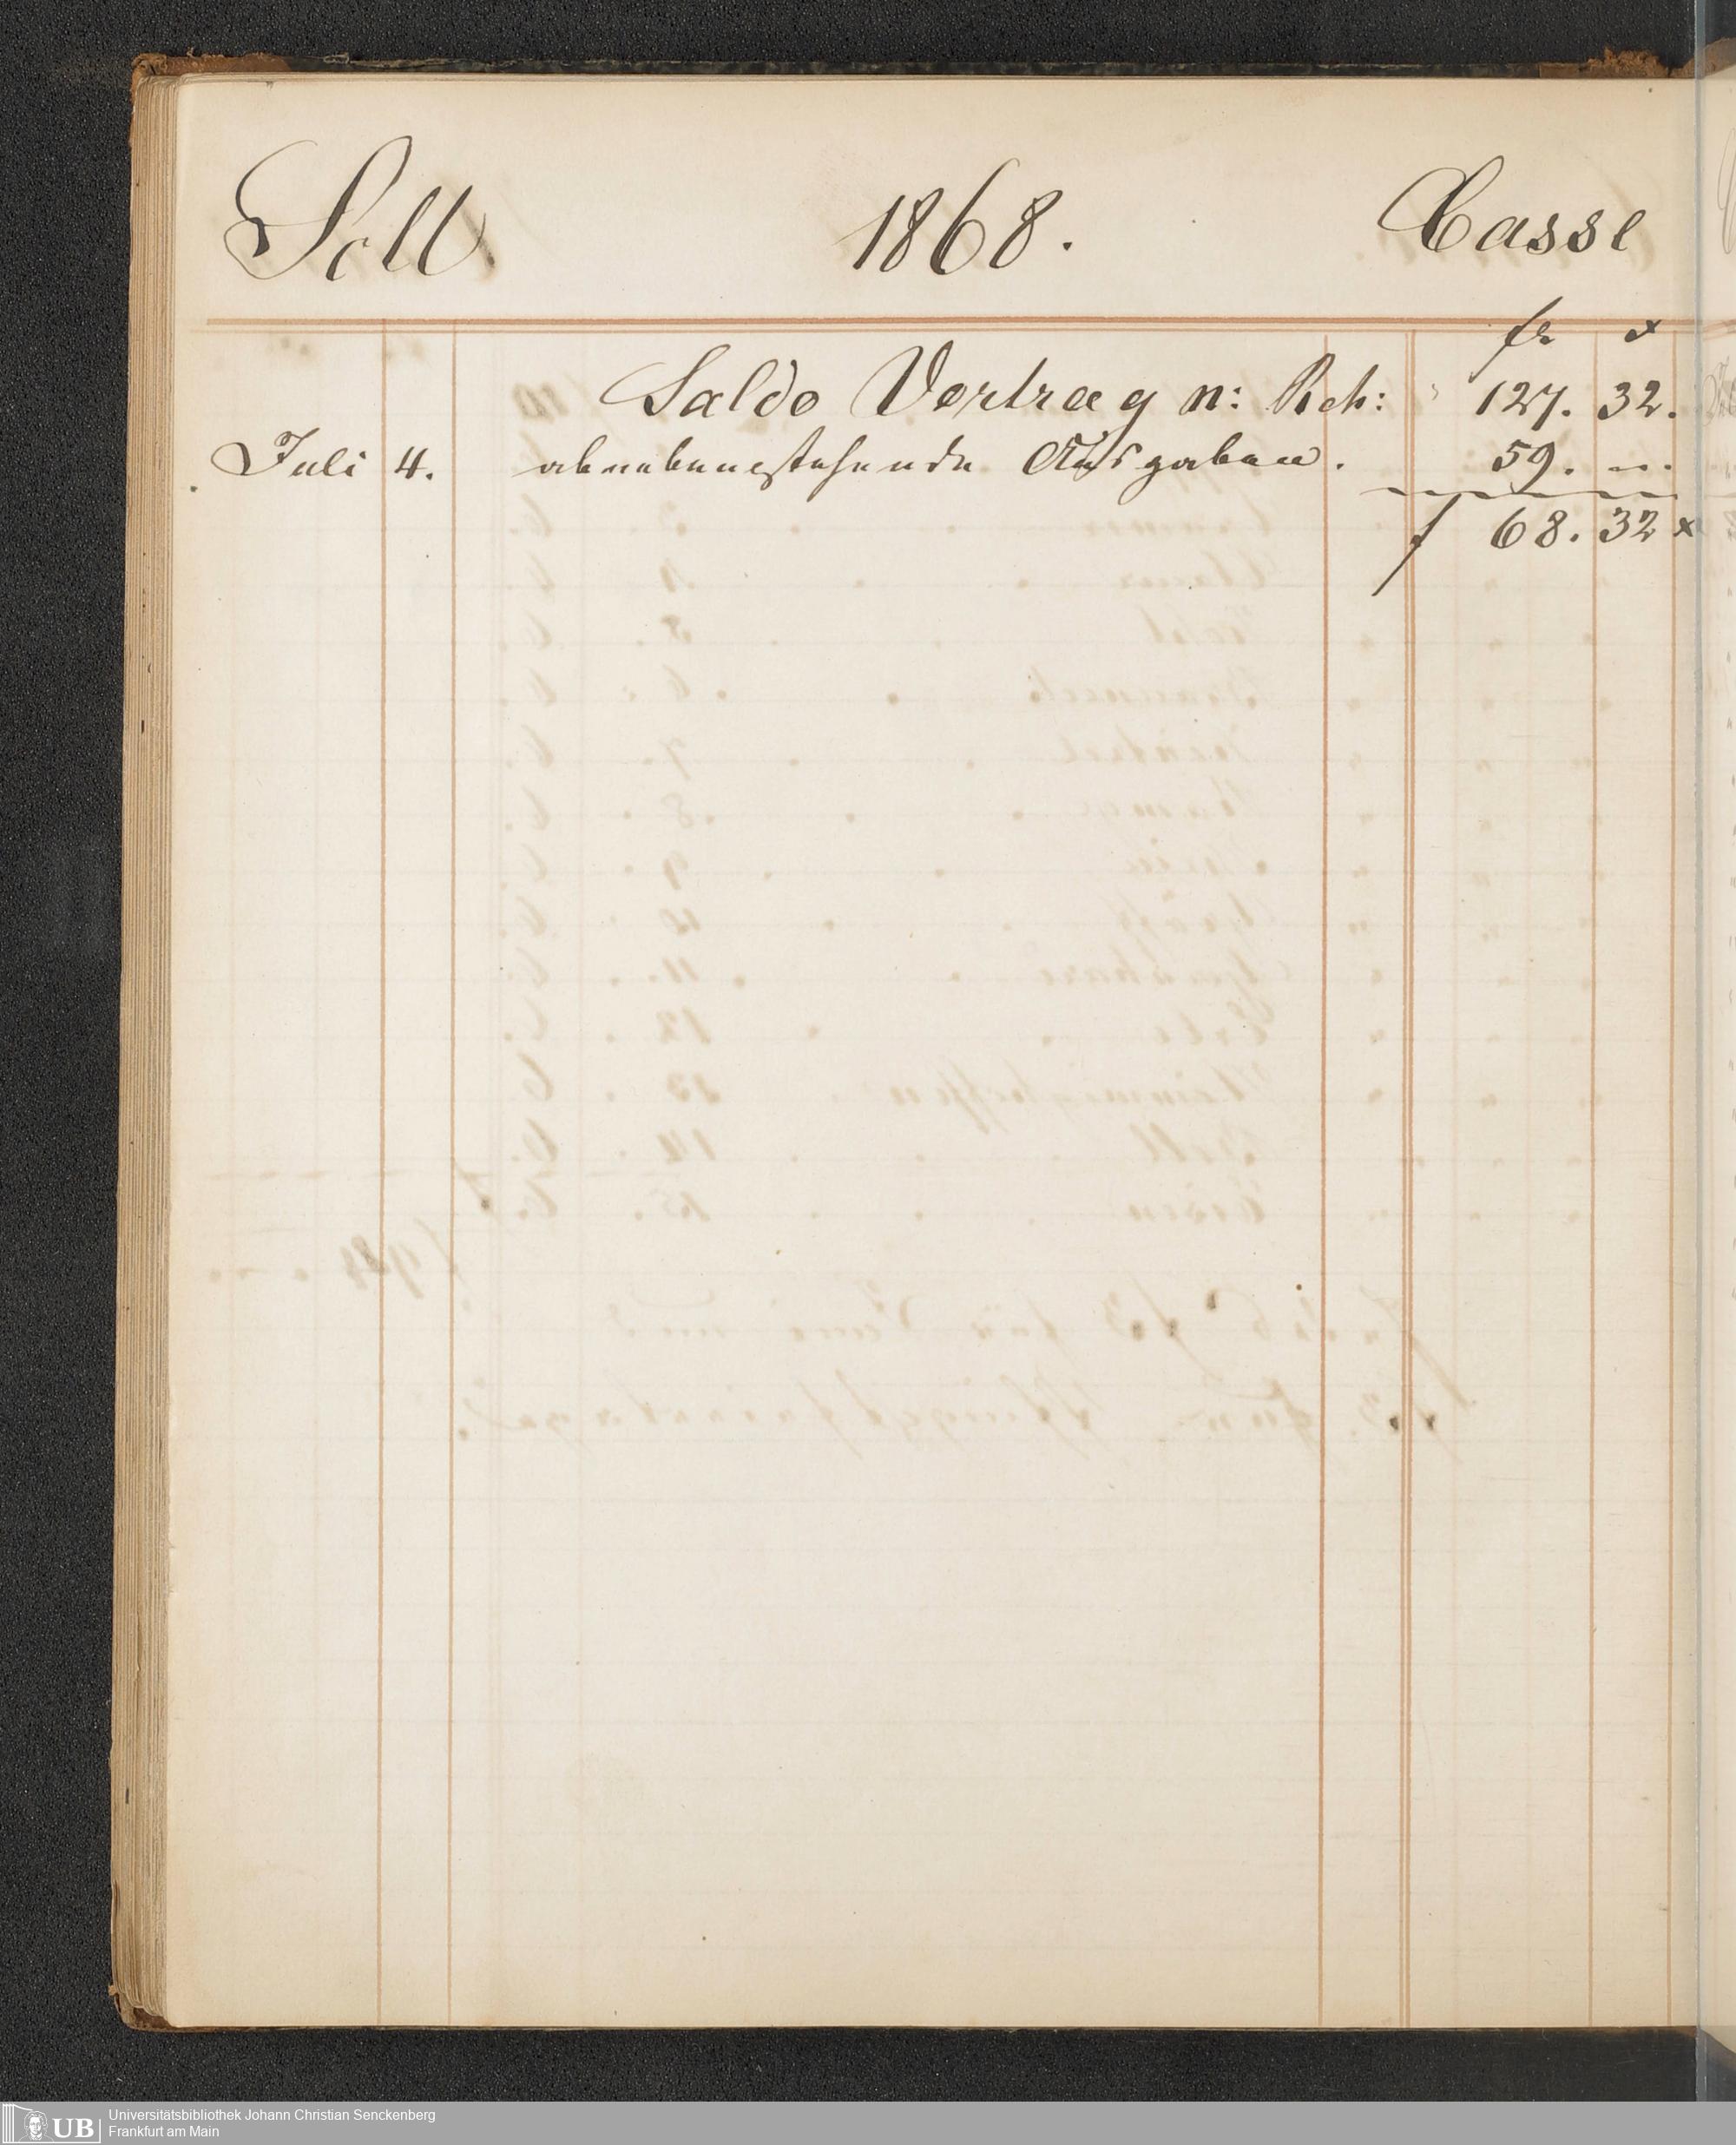 Soll 1868. Casse
fr x
Saldo Vortrag n: Rch: 127. 32.
Juli 4. ab nebenstehende Ausgaben. 59. —.
f 68. 32 x
UB Universitätsbibliothek Johann Christian Senckenberg
Frankfurt am Main